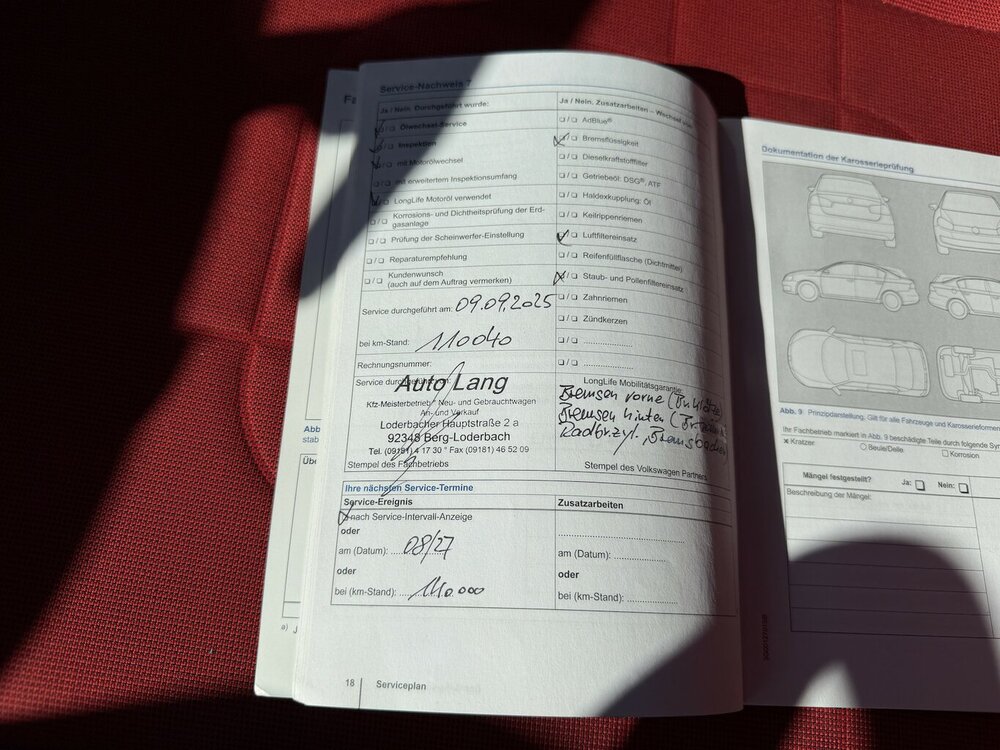 Service-Nachweis 7
Ja / Nein. Durchgeführt wurde:
❏/❏ Ölwechsel-Service
❏/❏ Inspektion
❏/❏ mit Motorölwechsel
❏/❏ mit erweitertem Inspektionsumfang
❏/❏ LongLife Motoröl verwendet
❏/❏ Korrosions- und Dichtheitsprüfung der Erd-
gasanlage
❏/❏ Prüfung der Scheinwerfer-Einstellung
❏/❏ Reparaturempfehlung
❏/❏ Kundenwunsch
(auch auf dem Auftrag vermerken)
Service durchgeführt am: 09.09.2025
bei km-Stand: 110040
Rechnungsnummer:
Service durchgeführt
Auto Lang
Kfz-Meisterbetrieb * Neu- und Gebrauchtwagen
An- und Verkauf
Loderbacher Hauptstraße 2 a
92348 Berg-Loderbach
Tel. (09181) 4 17 30 * Fax (09181) 46 52 09
Stempel des Fachbetriebs
Ja / Nein. Zusatzarbeiten – Wechsel von:
❏/❏ AdBlue®
❏/❏ Bremsflüssigkeit
❏/❏ Dieselkraftstofffilter
❏/❏ Getriebeöl: DSG®, ATF
❏/❏ Haldexkupplung: Öl
❏/❏ Keilrippenriemen
❏/❏ Luftfiltereinsatz
❏/❏ Reifenfüllflasche (Dichtmittel)
❏/❏ Staub- und Pollenfiltereinsatz
❏/❏ Zahnriemen
❏/❏ Zündkerzen
❏/❏ ....................
❏/❏ ....................
LongLife Mobilitätsgarantie:
Bremsen vorne
Bremsen hinten
Radbrzyl.,
Stempel des Volkswagen Partners
Ihre nächsten Service-Termine
Service-Ereignis
nach Service-Intervall-Anzeige
oder
am (Datum): 08/27
oder
bei (km-Stand): 140.000
Zusatzarbeiten
am (Datum):
oder
bei (km-Stand):
18 Serviceplan
Dokumentation der Karosserieprüfung
Abb. 9 Prinzipdarstellung. Gilt für alle Fahrzeuge und Karosserieformen
Ihr Fachbetrieb markiert in Abb. 9 beschädigte Teile durch folgende
× Kratzer ○ Beule/Delle □ Korrosion
Mängel festgestellt? Ja: ❏ Nein: ❏
Beschreibung der Mängel:
a)